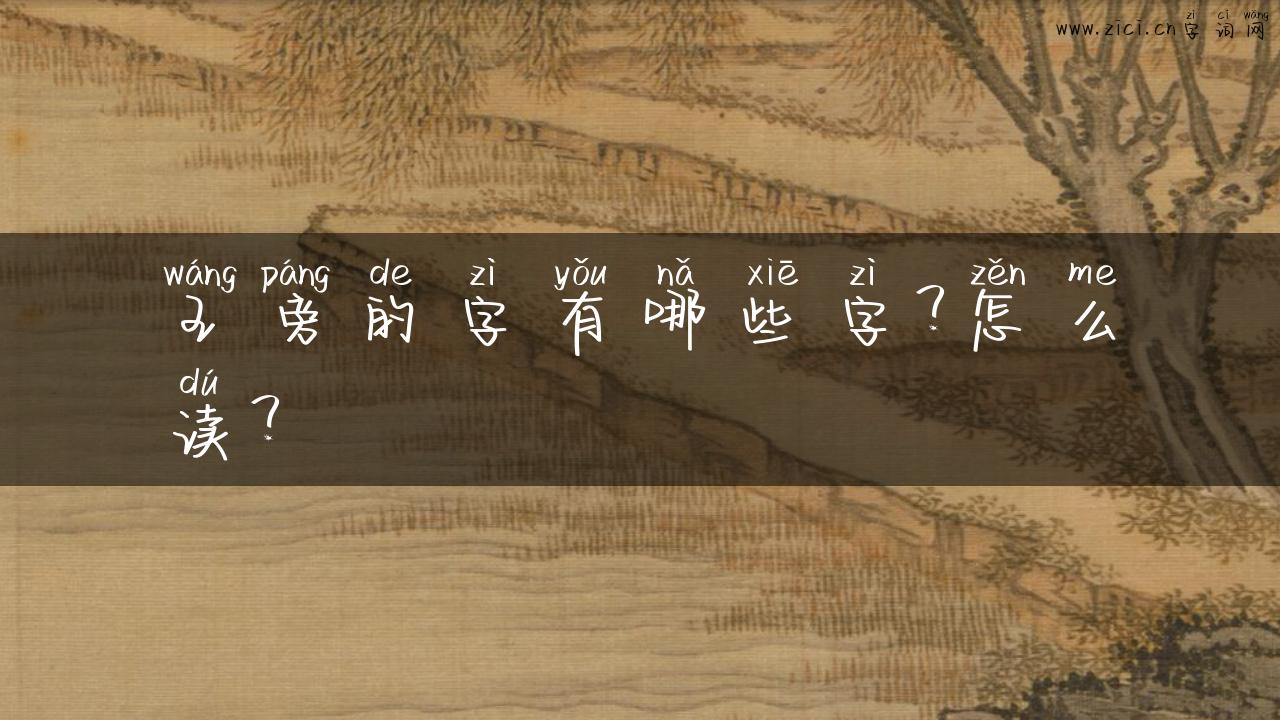 zì cí wǎng
www.zici.cn字词网
wáng páng de zì yǒu nǎ xiē zì zěn me
王旁的字有哪些字？怎么
dú
读？